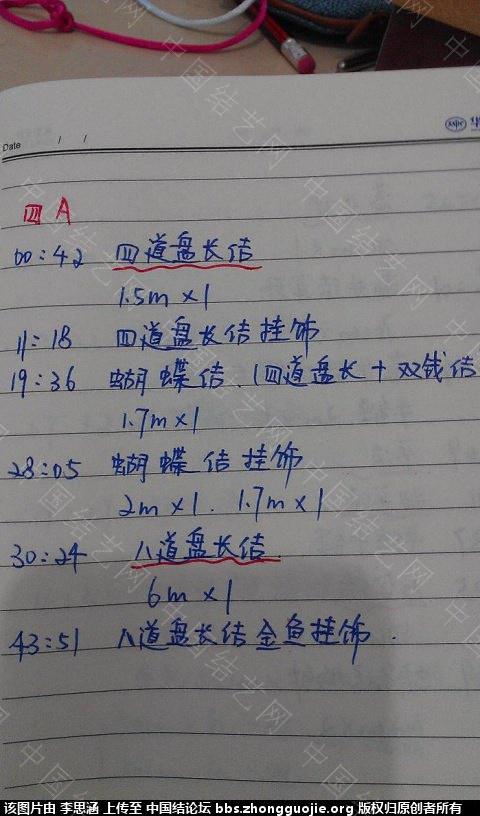 Date / /
四 A
00:42 四道盘长结
1.5m × 1
11:18 四道盘长结挂饰
19:36 蝴蝶结.(四道盘长+双钱结
1.7m×1
28:05 蝴蝶结挂饰
2m×1. 1.7m×1
30:24 八道盘长结
6m×1
43:51 八道盘长结金鱼挂饰.
中国结艺网
该图片由 李思涵 上传至 中国结论坛 bbs.zhongguojie.org 版权归原创者所有